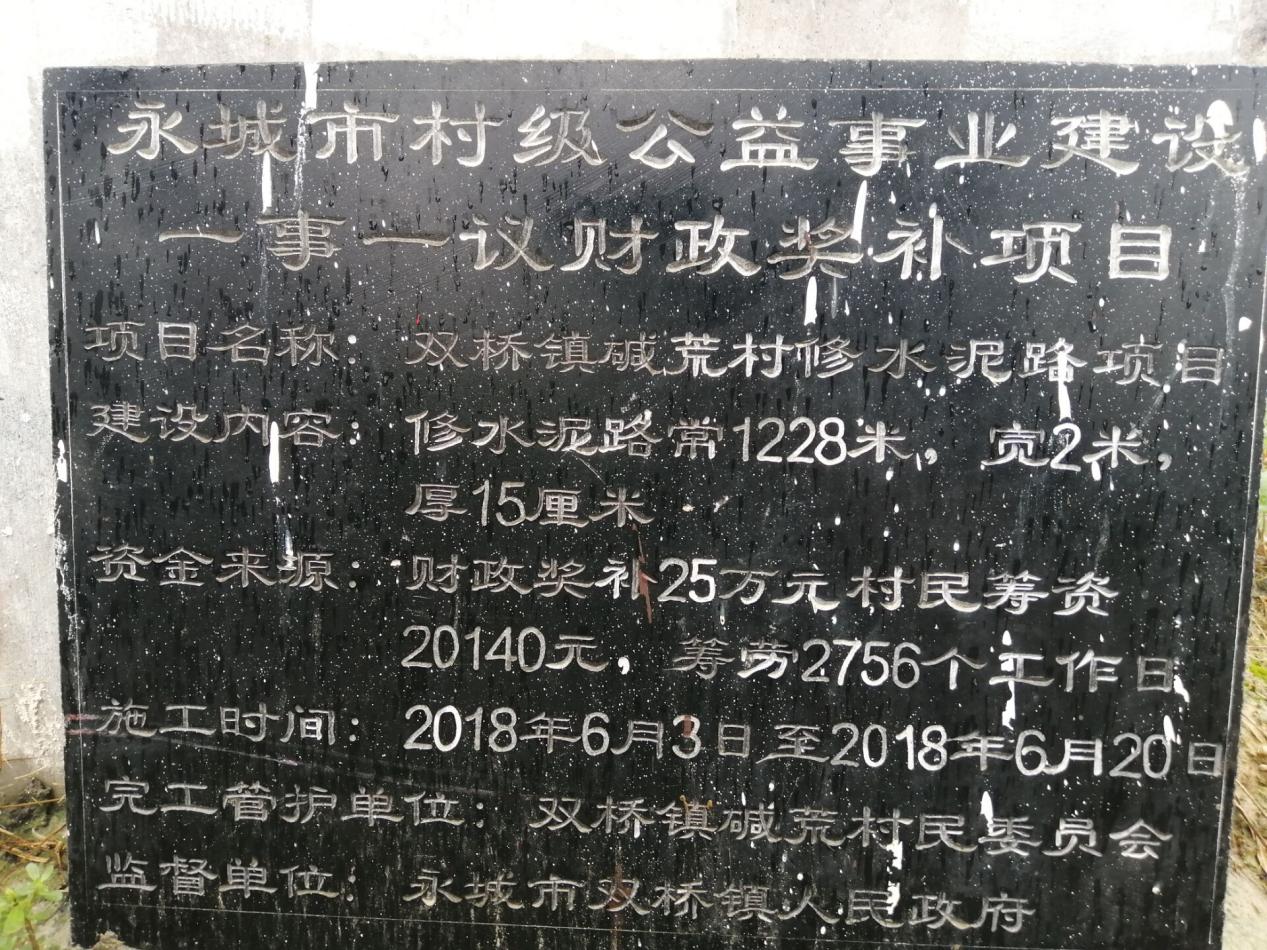 永城市村级公益事业建设
一事一议财政奖补项目
项目名称：双桥镇碱荒村修水泥路项目
建设内容：修水泥路常1228米，宽2米，
厚15厘米
资金来源：财政奖补25万元村民筹资
20140元，筹劳2756个工作日
施工时间：2018年6月3日至2018年6月20日
完工管护单位：双桥镇碱荒村民委员会
监督单位：永城市双桥镇人民政府